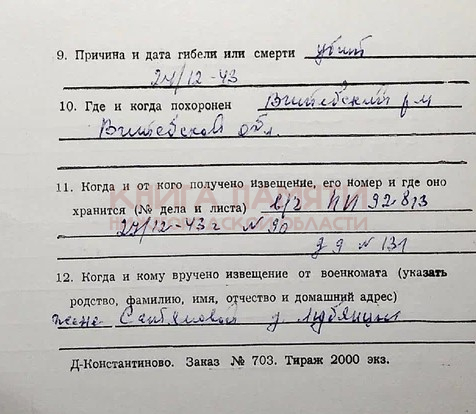 9. Причина и дата гибели или смерти убит
27/12-43
10. Где и когда похоронен Витебский р-н
Витебской обл.
11. Когда и от кого получено извещение, его номер и где оно
КНИГА ПАМЯТИ
хранится (№ дела и листа) в/ч ПП 92813
НИЖЕГОРОДСКОЙ ОБЛАСТИ
27/12-43 г N 90
д 9 N 131
12. Когда и кому вручено извещение от военкомата (указать
родство, фамилию, имя, отчество и домашний адрес)
жена д.
Д-Константиново. Заказ № 703. Тираж 2000 экз.